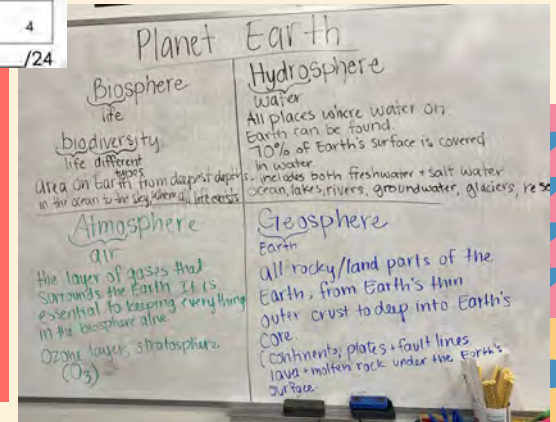 4
/24
Planet Earth
Biosphere
life
biodiversity
life different
types
area on Earth from deepest depths
in the ocean to the sky, where all life exists
Hydrosphere
water
All places where water on
Earth can be found.
70% of Earth's surface is covered
in water
- includes both freshwater + salt water
ocean, lakes, rivers, groundwater, glaciers, rese
Atmosphere
air
the layer of gases that
surrounds the Earth. It is
essential to keeping everything
in the biosphere alive.
Ozone layer, stratosphere
(O3)
Geosphere
Earth
all rocky/land parts of the
Earth, from Earth's thin
outer crust to deep into Earth's
core.
(continents, plates + fault lines
lava + molten rock under the Earth's
surface